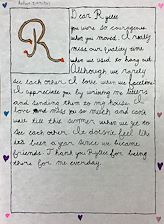 R
Dear Rylee
you were so courageous
when you moved. I really
miss our quality time
when we used to hang out.
Although we rarely
see each other I love when we facetime
I appreciate you by writing me letters
and sending them to my house. I
love and miss you so much and cant
wait till the summer when we get to
see each other. It doesnt feel like
its been a year since we became
friends. Thank you Rylee for being
there for me everyday.